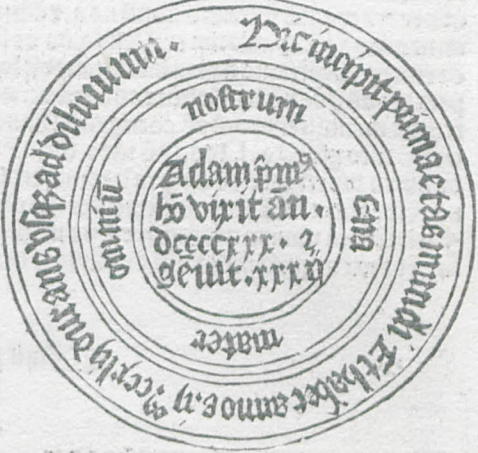 Hic incipit prima etas mundi Et habet annos ij ccxlij durans vsqꝫ ad diluuium.
Eua
mater
omniū
nostrum
Adam p̄mꝰ
hō vixit ān.
dccccxxx. ⁊
gēuit.xxxij